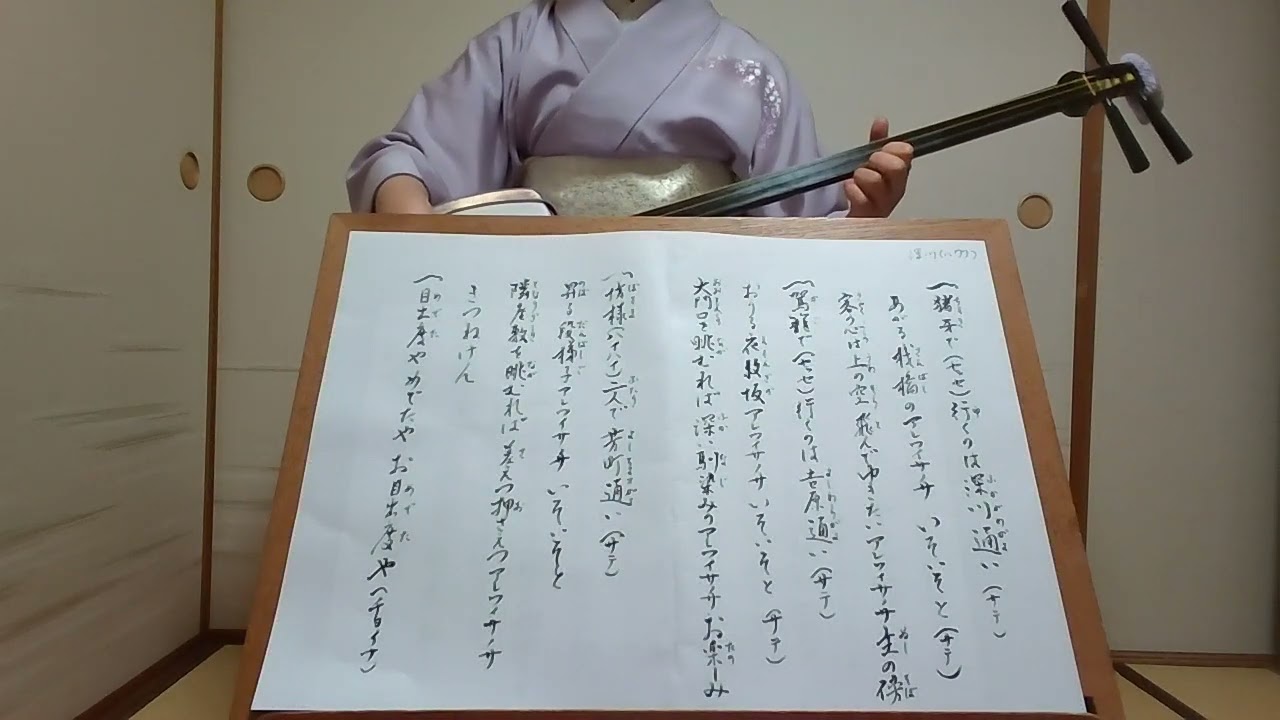 深川(ハワフ)
猪牙で(セッセ)行くのは深川通い(サテ)
あがる桟橋のアレワイサノサ いそいそと(サテ)
客の心は上の空 飛んでゆきたいアレワイサノサ主の傍
駕籠で(セッセ)行くのは吉原通い(サテ)
おりる衣紋坂アレワイサノサ いそいそと(サテ)
大門口を眺むれば深い馴染みのアレワイサノサ お楽しみ
坊様(ハイハイ)二人で芳町通い(サテ)
昇る段梯子アレワイサノサ いそいそと
隣座敷を眺むれば 差えつ押さえつアレワイサノサ
きつねけん
目出度やめでたや お目出度や(チョイナ)